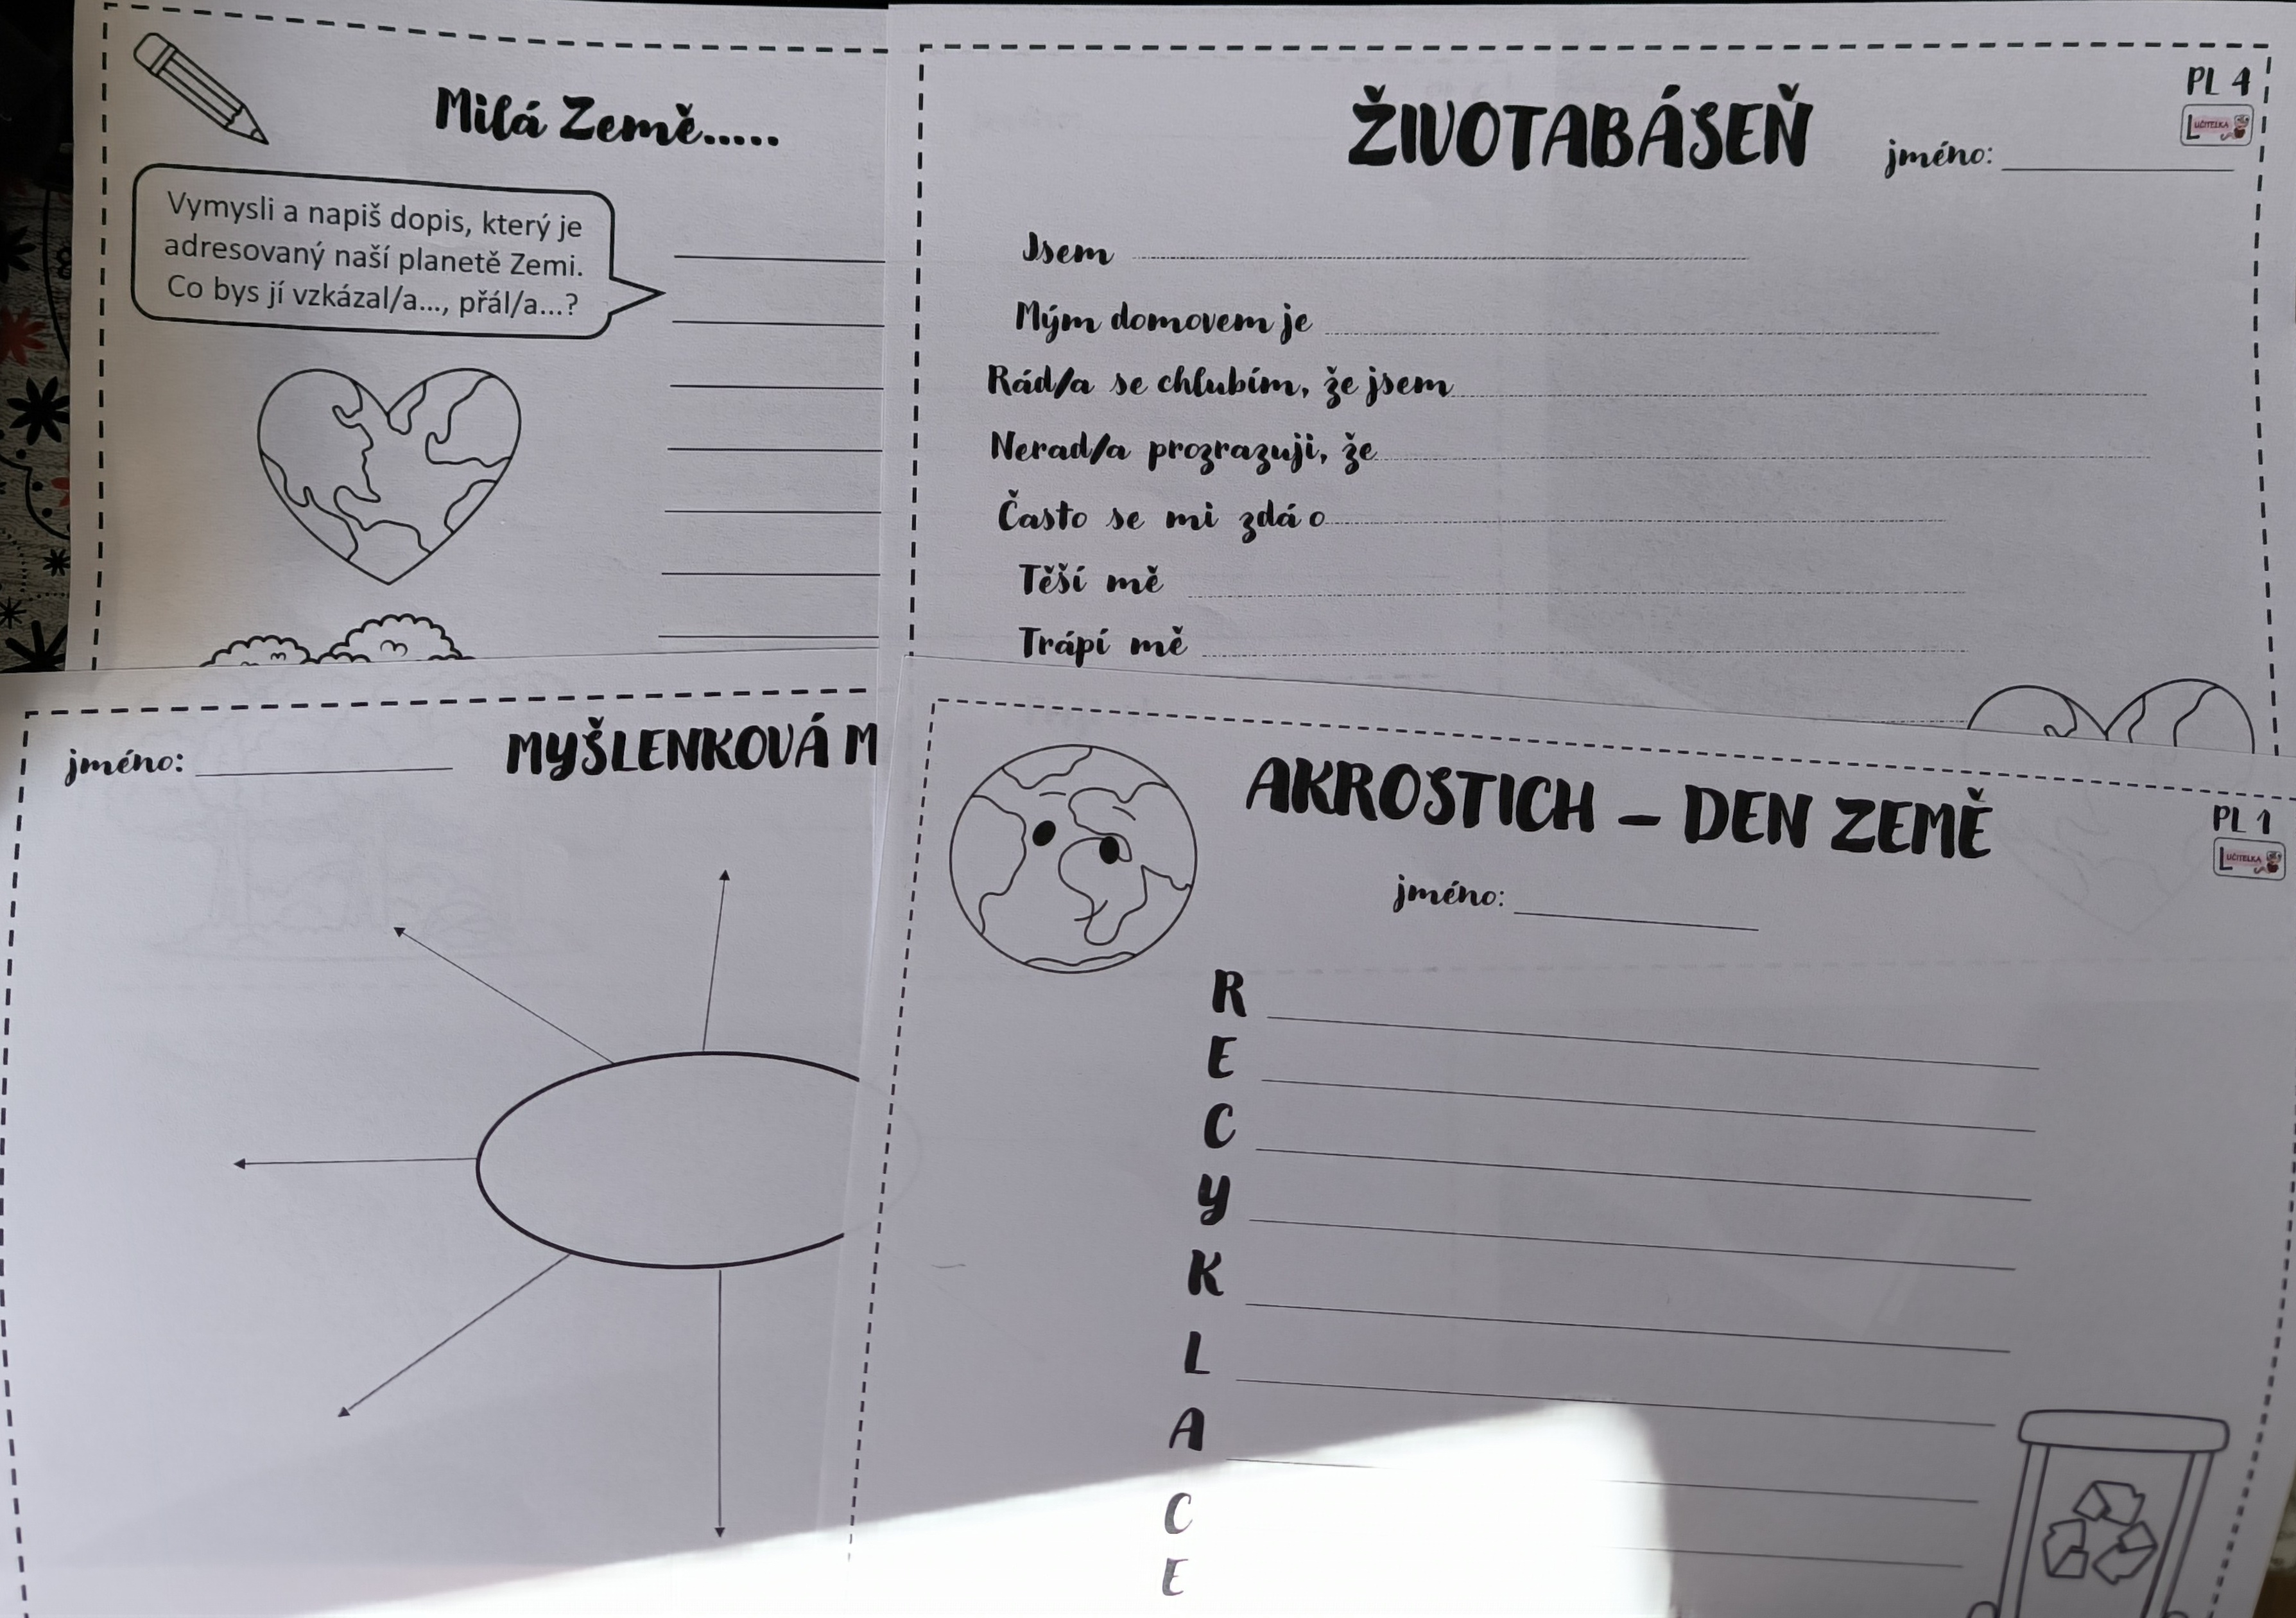 Milá Země.....
Vymysli a napiš dopis, který je
adresovaný naší planetě Zemi.
Co bys jí vzkázal/a..., přál/a...?
PL 4
UČITELKA
ŽIVOTABÁSEŇ
jméno:
Jsem
Mým domovem je
Rád/a se chlubím, že jsem
Nerad/a prozrazuji, že
Často se mi zdá o
Těší mě
Trápí mě
jméno:
MYŠLENKOVÁ M
AKROSTICH – DEN ZEMĚ
PL 1
LUČITELKA
jméno:
R
E
C
Y
K
L
A
C
E